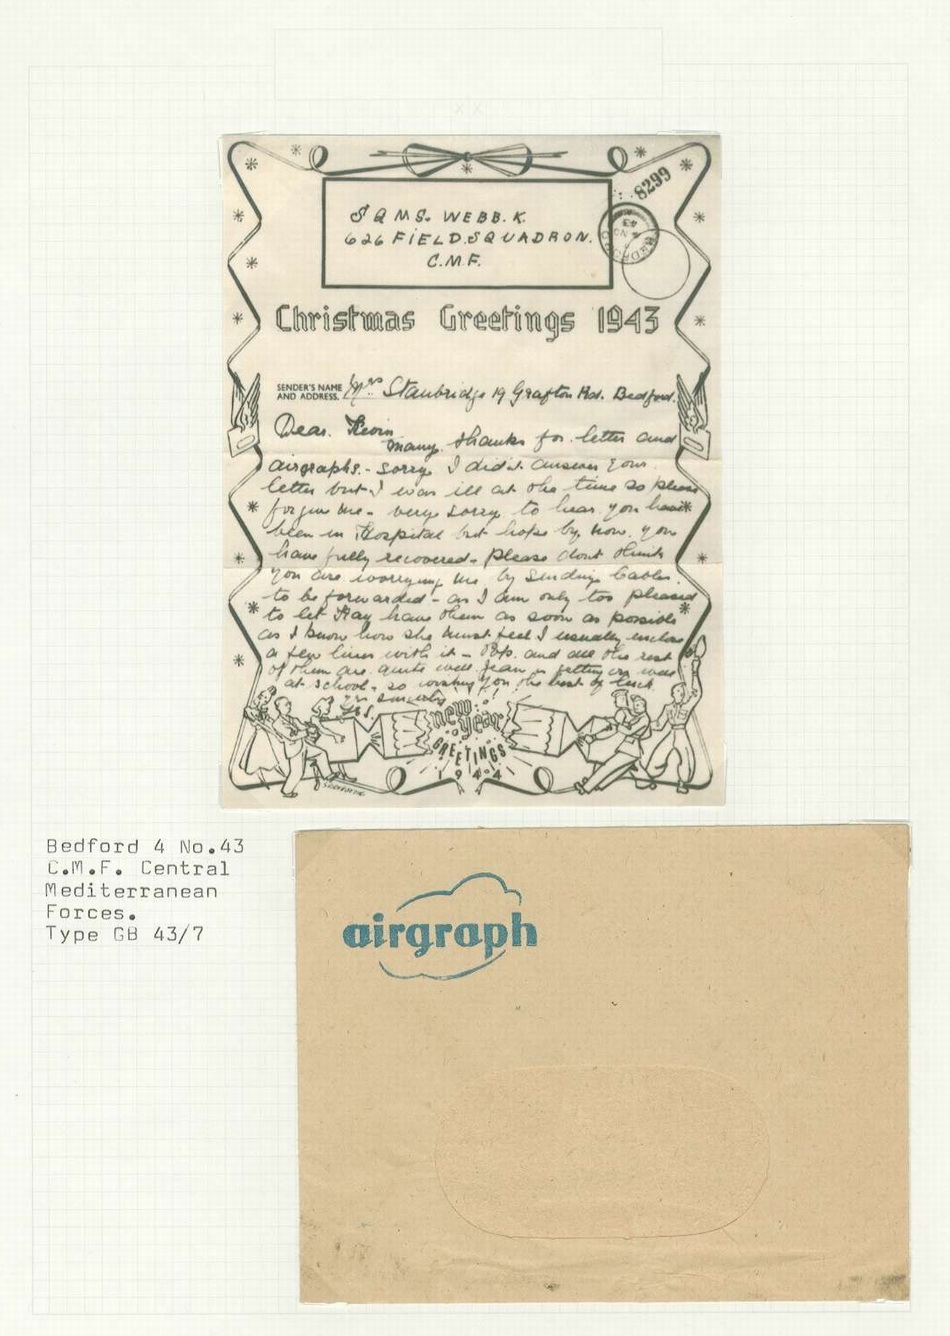 8299
BEDFORD
4 NO
43
S Q M S. WEBB. K.
626 FIELD. SQUADRON.
C.M.F.
Christmas Greetings 1943
SENDER'S NAME Mrs Stanbridge 19 Grafton Rd. Bedford.
AND ADDRESS.
Dear. Kevin
Many. thanks for. letter and
airgraphs. - sorry I did'nt answer your
letter but I was ill at the time so please
forgive me - very sorry to hear. you have
been in Hospital but hope by. now. you
have fully recovered - please dont think
you are worrying me by sending Cables.
to be forwarded - as I am only too pleased
to let Kay have them as soon as possible
as I know how she must feel I usually enclose
a few lines with it - Pop. and all the rest
of them are quite well Jean is getting on well
at school - so wishing you the best of luck
yrs sincerely
new
year
GREETINGS
1944
Bedford 4 No.43
C.M.F. Central
Mediterranean
Forces.
Type GB 43/7
airgraph